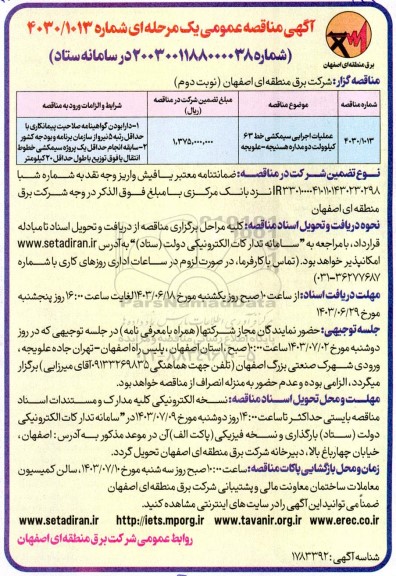 آگهی مناقصه عمومی یک مرحله ای شماره ۴۰۳۰/۱۰۱۳
(شماره ۲۰۰۳۰۰۱۱۸۸۰۰۰۰۳۸ در سامانه ستاد)
برق منطقه ای اصفهان
مناقصه گزار: شرکت برق منطقه ای اصفهان (نوبت دوم)
شماره مناقصه
موضوع مناقصه
مبلغ تضمین شرکت در مناقصه (ریال)
شرایط و الزامات ورود به مناقصه
۴۰۳۰/۱۰۱۳
عملیات اجرایی سیمکشی خط ۶۳ کیلوولت دو مداره هسنیجه - علویجه
۱,۳۷۵,۰۰۰,۰۰۰
۱- دارا بودن گواهینامه صلاحیت پیمانکاری با حداقل رتبه ۵ نیرو از سازمان برنامه و بودجه کشور
۲- سابقه انجام حداقل یک پروژه سیمکشی خطوط انتقال یا فوق توزیع با طول حداقل ۲۰ کیلومتر
نوع تضمین شرکت در مناقصه: ضمانتنامه معتبر یا فیش واریز وجه نقد به شماره شبا
نزد بانک مرکزی با مبلغ فوق الذکر در وجه شرکت برق
منطقه ای اصفهان
نحوه دریافت و تحویل اسناد مناقصه: کلیه مراحل برگزاری مناقصه از دریافت و تحویل اسناد تا مبادله
قرارداد، با مراجعه به "سامانه تدارکات الکترونیکی دولت (ستاد)" به آدرس www.setadiran.ir
امکانپذیر خواهد بود. (تماس با کارفرما، در صورت لزوم در ساعات اداری روزهای کاری با شماره
۳۶۲۷۷۶۸۷-۰۳۱)
مهلت دریافت اسناد: از ساعت ۱۰ صبح روز یکشنبه مورخ ۱۴۰۳/۰۶/۱۸ لغایت ساعت ۱۶:۰۰ روز پنجشنبه
مورخ ۱۴۰۳/۰۶/۲۹
جلسه توجیهی: حضور نمایندگان مجاز شرکتها (همراه با معرفی نامه) در جلسه توجیهی که در روز
دوشنبه مورخ ۱۴۰۳/۰۷/۰۲ ساعت ۱۰:۰۰ صبح، استان اصفهان، پلیس راه اصفهان - تهران جاده علویجه،
ورودی شهرک صنعتی بزرگ اصفهان (تلفن جهت هماهنگی ۰۹۱۳۳۲۶۹۸۳۵ آقای میرزایی) برگزار
میگردد، الزامی بوده و عدم حضور به منزله انصراف از مناقصه خواهد بود.
مهلت و محل تحویل اسناد مناقصه: نسخه الکترونیکی کلیه مدارک و مستندات اسناد
مناقصه بایستی حداکثر تا ساعت ۱۴:۰۰ روز دوشنبه مورخ ۱۴۰۳/۰۷/۰۹ در "سامانه تدارکات الکترونیکی
دولت (ستاد) بارگذاری و نسخه فیزیکی (پاکت الف) آن در موعد مذکور به آدرس: اصفهان،
خیابان چهارباغ بالا، دبیرخانه شرکت برق منطقه ای اصفهان تحویل گردد.
زمان و محل بازگشایی پاکات مناقصه: ساعت ۱۰:۰۰ صبح روز سه شنبه مورخ ۱۴۰۳/۰۷/۱۰، سالن کمیسیون
معاملات ساختمان معاونت مالی و پشتیبانی شرکت برق منطقه ای اصفهان
ضمناً می توانید این آگهی را در سایت های اینترنتی مشاهده کنید.
www.setadiran.ir http://iets.mporg.ir www.tavanir.org.ir www.erec.co.ir
روابط عمومی شرکت برق منطقه ای اصفهان
شناسه آگهی: ۱۷۸۳۳۹۲